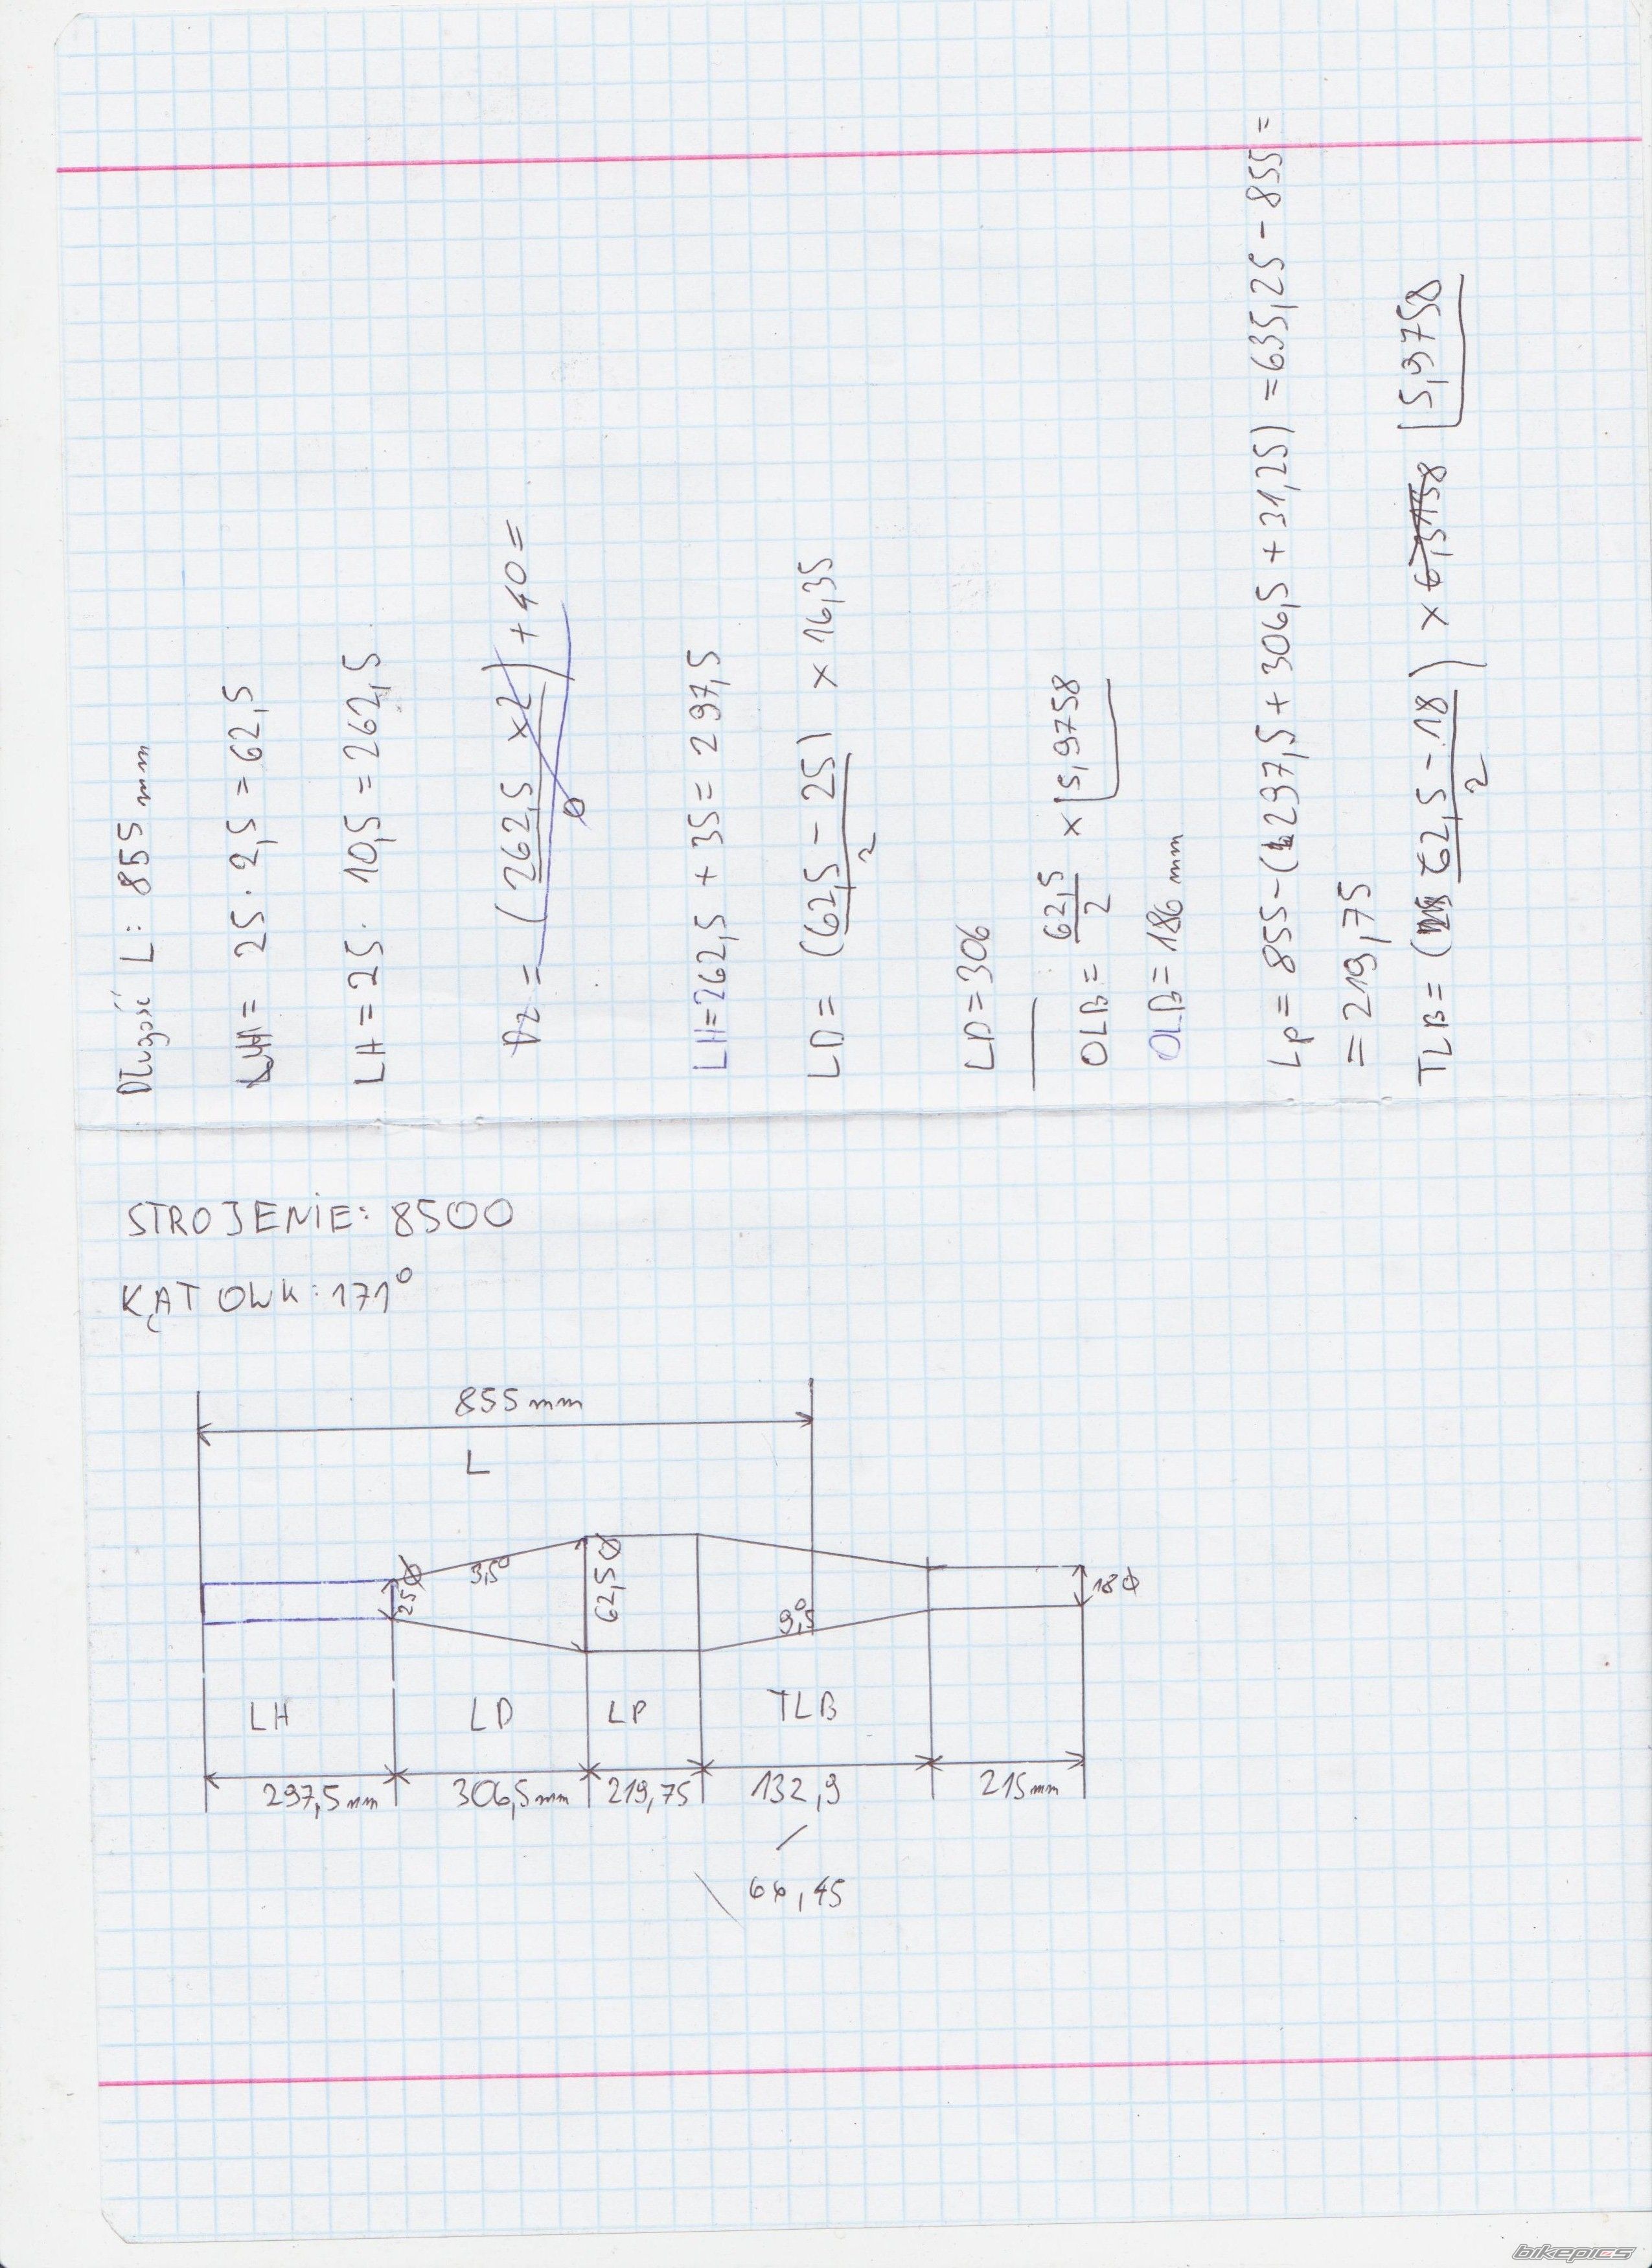 Długość L: 855 mm
LH = 25 · 2,5 = 62,5
LH = 25 · 10,5 = 262,5
Dz = (262,5 x2) + 40 =
Ø
LH=262,5 + 35 = 297,5
LD = (62,5 - 25) x 16,35
2
LD = 306
OLB = 62,5 x 5,9758
2
OLB = 186 mm
Lp = 855-(297,5 + 306,5 + 31,25) = 635,25 - 855 =
= 219,75
TLB = (62,5 - 18) x 5,9758
2
STROJENIE: 8500
KĄT OWK: 171°
855 mm
L
25 Ø
3,5°
62,5 Ø
9,5°
18 Ø
LH LD LP TLB
297,5 mm 306,5 mm 219,75 132,9 215 mm
66,45
bikepics